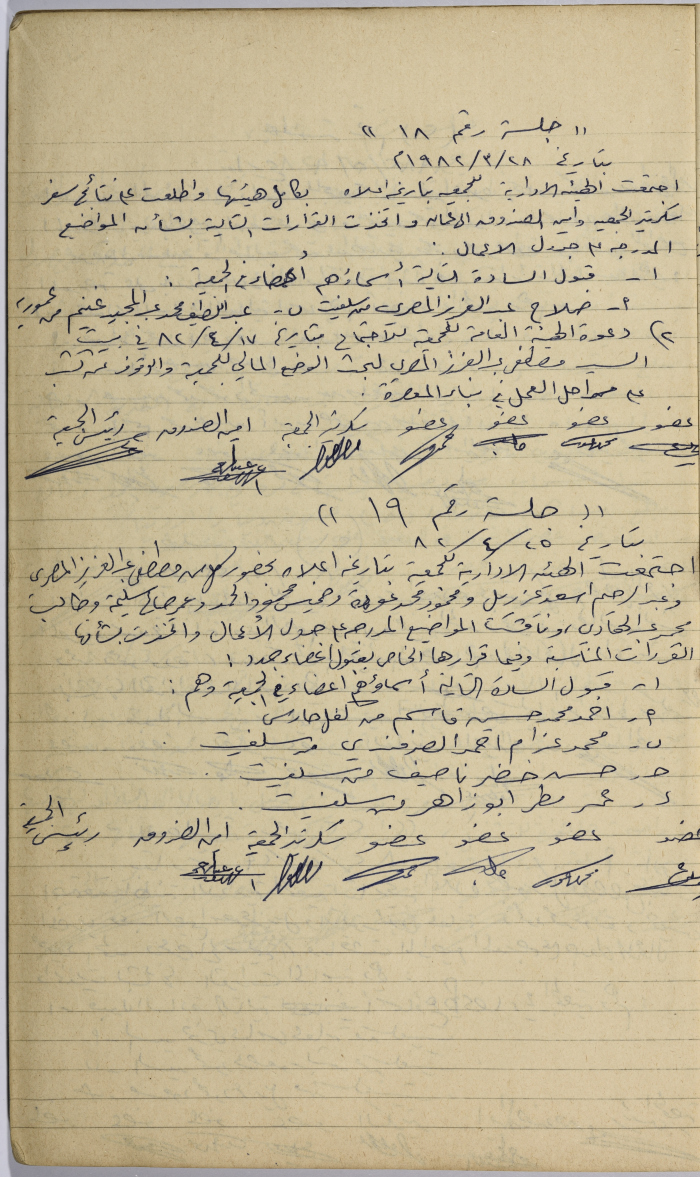 (( جلسة رقم ١٨ ))
بتاريخ ١٩٨٢/٣/٢٨م
اجتمعت الهيئة الادارية للجمعية بتاريخه اعلاه بكامل هيئتها واطلعت على نتائج سفر
سكرتير الجمعية وامين الصندوق الى عمان واتخذت القرارات التالية بشأن المواضيع
المدرجة على جدول الاعمال :
١- قبول السادة التالية أسماؤهم أعضاء في الجمعية :
٢- صلاح عبد العزيز المصري من سلفيت ب- عبد اللطيف محمد عبد المجيد غنيم من عموريه
٢) دعوة الهيئة العامة للجمعية للاجتماع بتاريخ ٨٢/٤/١٧ في بيت
السيد مصطفى عبد العزيز المصري لبحث الوضع المالي للجمعية والوقوف عن كثب
على مراحل العمل في بناء المعصرة .
عضو عضو عضو عضو سكرتير الجمعية امين الصندوق رئيس الجمعية
(( جلسة رقم ١٩ ))
بتاريخ ٨٢/٤/٢٥
اجتمعت الهيئة الادارية للجمعية بتاريخه اعلاه بحضور كل من مصطفى عبد العزيز المصري
وعبد الرحيم اسعد عزريل ومحمود محمد عودة وخميس محمود الحمد وعمر صالح سليمة وطالب
محمد عبد الهادي وناقشت المواضيع المدرجة على جدول الأعمال واتخذت بشأنها
القرارات المناسبة وفيما قرارها الخاص بقبول أعضاء جدد :
١- قبول السادة التالية أسماؤهم اعضاء في الجمعية وهم :
٢- احمد محمد حسين قاسم من كفل حارس
ب- محمد عزام احمد الصرفندي من سلفيت
ح- حسن خضر ناصيف من سلفيت .
د- عمر مطر ابو زاهر من سلفيت .
عضو عضو عضو عضو سكرتير الجمعية امين الصندوق رئيس الجمعية